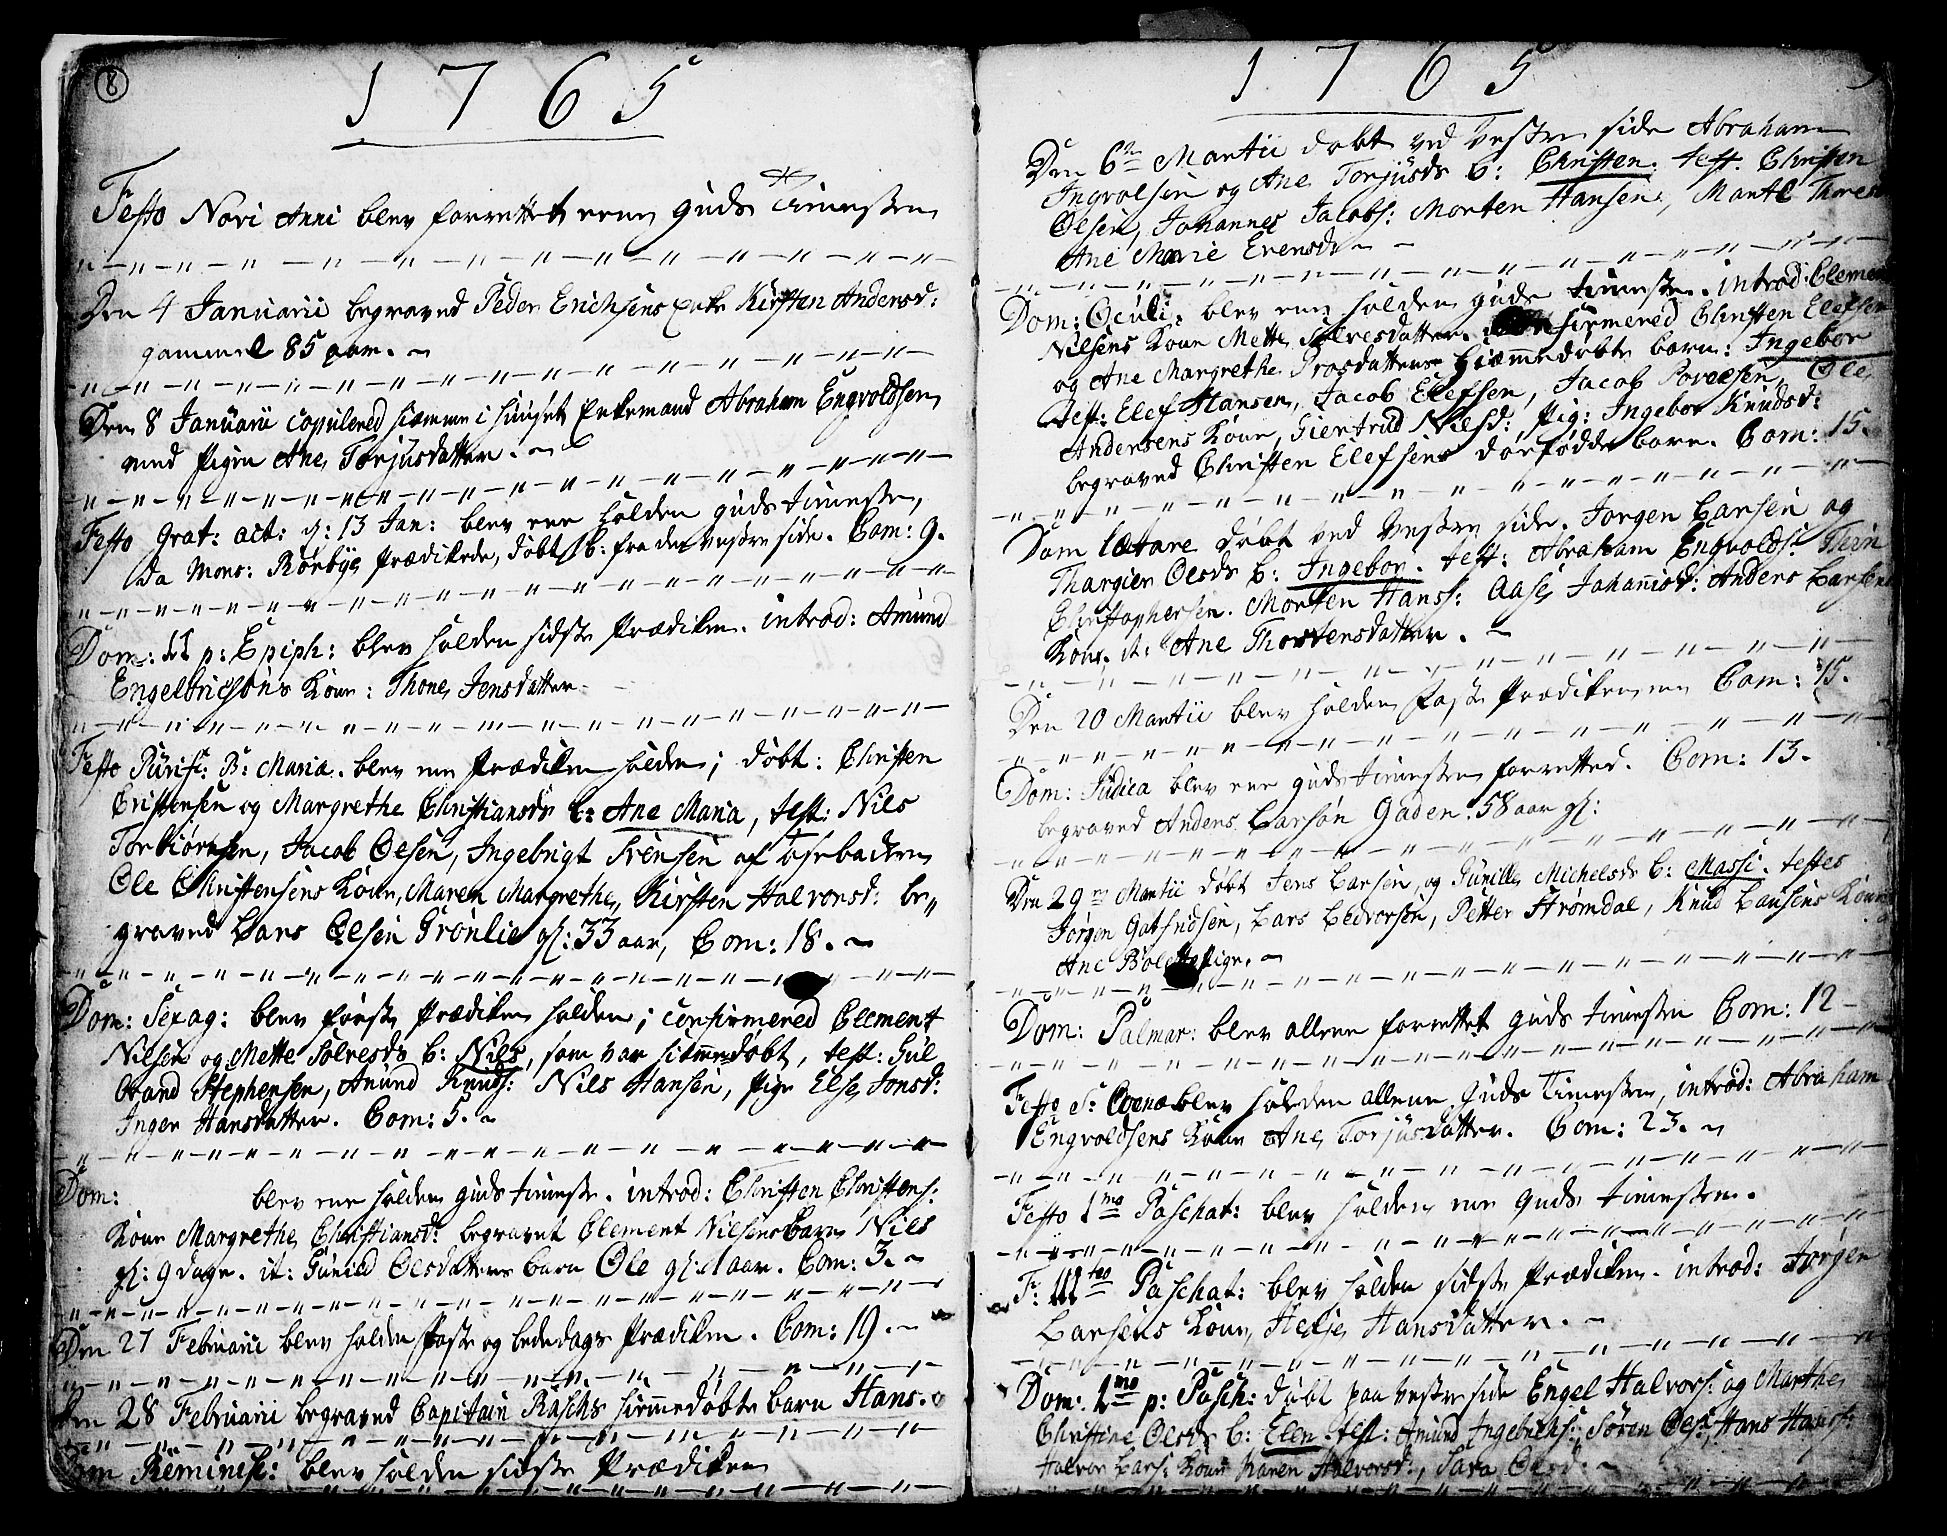 8
1765
Festo Novi Anni blev forrettet een Guds Tieneste
Den 4 Januarii begraved Peder Erichsens Enke Kirsten Andersd:
gammel 85 aar.
Den 8 Januarii copulered hiemme i huuset Enkemand Abraham Engvoldsen
med Pigen Ane Torjusdatter.
Festo Grat: act: d: 13 Jan: blev een holden guds tieneste,
da Mons: Rørbye Prædikede, døbt 1 b: fra den vestre side. Com: 9.
Dom: II p: Epiph: blev holden sidste Prædiken. introd: Amund
Engelbrichtsens Kone: Thone Jensdatter.
Festo Purif: B: Maria. blev een Prædiken holden; døbt: Christen
Cristensen og Margrethe Christiansds b: Ane Maria, test: Nils
Torbiørnsen, Jacob Olesen, Ingebrigt Svensen af
Ole Christensens Kone, Maren Margrethe, Kirsten Halvorsd: be„
graved Lars Olesen Grønlie gl: 33 aar, Com: 18.
Dom: Sexag: blev første Prædiken holden; confirmered Clement
Nilsens og Mette Solvesds b: Nils, som var hiemmedøbt, test: Gul
brand Stephensen, Amund Knuds: Nils Hansen, Pige Else Jonsd:
Inger Hansdatter. Com: 5.
Dom: blev een holden guds tieneste. introd: Christen Christens:
Kone Margrethe Christiansd: begravet Clement Nilsens Barn Nils
gl: 9 dage. it: Gunild Olesdatters barn Ole gl: 1 aar. Com: 3.
Den 27 Februarii blev holden faste og bededags Prædiken. Com: 19.
Den 28 Februarii begraved Capitain Raschs hiemmedøbte barn Hans.
Dom Reminisc: blev holden sidste Prædiken
1765
Den 6te Martii døbt ved Vestre side Abraham
Ingvolsen og Ane Torjusds b: Christen. test. Christen
Olesen, Johannes Jacobs: Morten Hansen, Marte Thores
Ane Marie Evensds
Dom: Oculi: blev een holden guds tieneste. introd: Clement
Nilsens Kone Mette Solvesdatter. confirmered Christen Elefsen
og Ane Margrethe Prosdatters hiemmedøbte barn: Ingebor
Test: Elef Hansen, Jacob Elefsen, Jacob Povelsen, Ole
Andersens Kone, Giertrud Nilsd: Pig: Ingebor Knudsd:
begraved Christen Elefsens dødfødde barn. Com: 15.
Dom Lætare døbt ved Vestre side. Jorgen Larsen og
Thargier Olesds b: Ingebor. test: Abraham Engvolds:
Christophersen. Morten Hanss: Aase Johanisd: Anders Larsens
Kone. it: Ane Thorstensdatter.
Den 20 Martii blev holden faste Prædiken Com: 15.
Dom: Judica blev een guds tieneste forretted. Com: 13.
begraved Anders Larsøn Gaden. 58 aar gl:
Den 29 Martii døbt Jens Larsen, og Gunille Michelsds b: Massi. testes
Jørgen Larsen, Lars Ledvorsen, Petter Strømdal, Knud Laursens Kone
Ane Bolette Pige.
Dom: Palmar: blev allene forrettet guds tieneste Com: 12
Festo S: Coena blev holden allene Guds Tieneste, introd: Abraham
Engvoldsens Kone Ane Torjusdatter. Com: 23.
Festo 1mo Paschat: blev holden een Guds tieneste.
F: III Paschat: blev holden sidste Prædiken. introd: Jørgen
Larsens Kone Helje Hansdatter.
Dom: 1mo p: Pasch: døbt paa Vestre side Engel Halvors: og Marthe
Christine Olesds b: Elen. test: Amund Ingebrichs: Søren Oles: Hans Hans:
Halvor Lars: Kone Karen Halvorsd:, Sara Olesd: